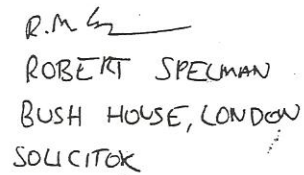 ROBERT SPELMAN
BUSH HOUSE, LONDON
SOLICITOR